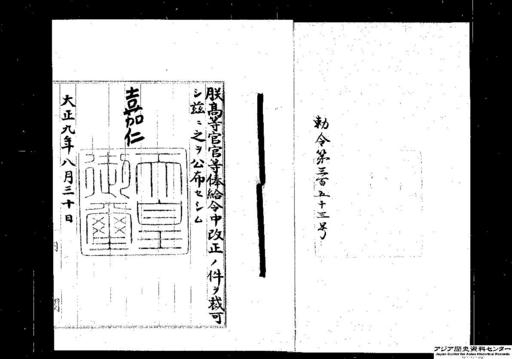 勅令第三百五十三号
朕高等官官等俸給令中改正ノ件ヲ裁可
シ茲ニ之ヲ公布セシム
嘉仁
天皇
御璽
大正九年八月三十日
アジア歴史資料センター
Japan Center for Asian Historical Records